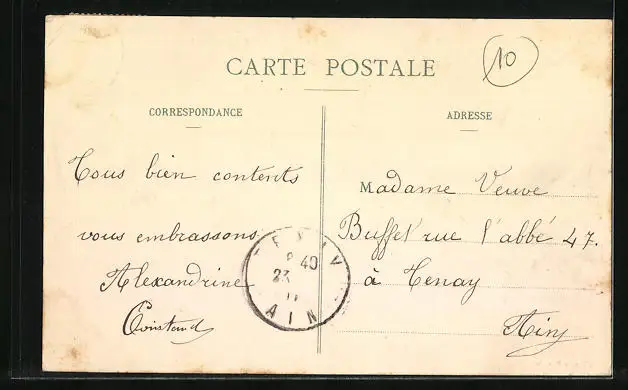 CARTE POSTALE
10
CORRESPONDANCE
Tous bien contents
vous embrassons
Alexandrine
Constend
ADRESSE
Madame Veuve
Buffet rue l'abbé 47.
à Tenay
Ain
23
40
AIN